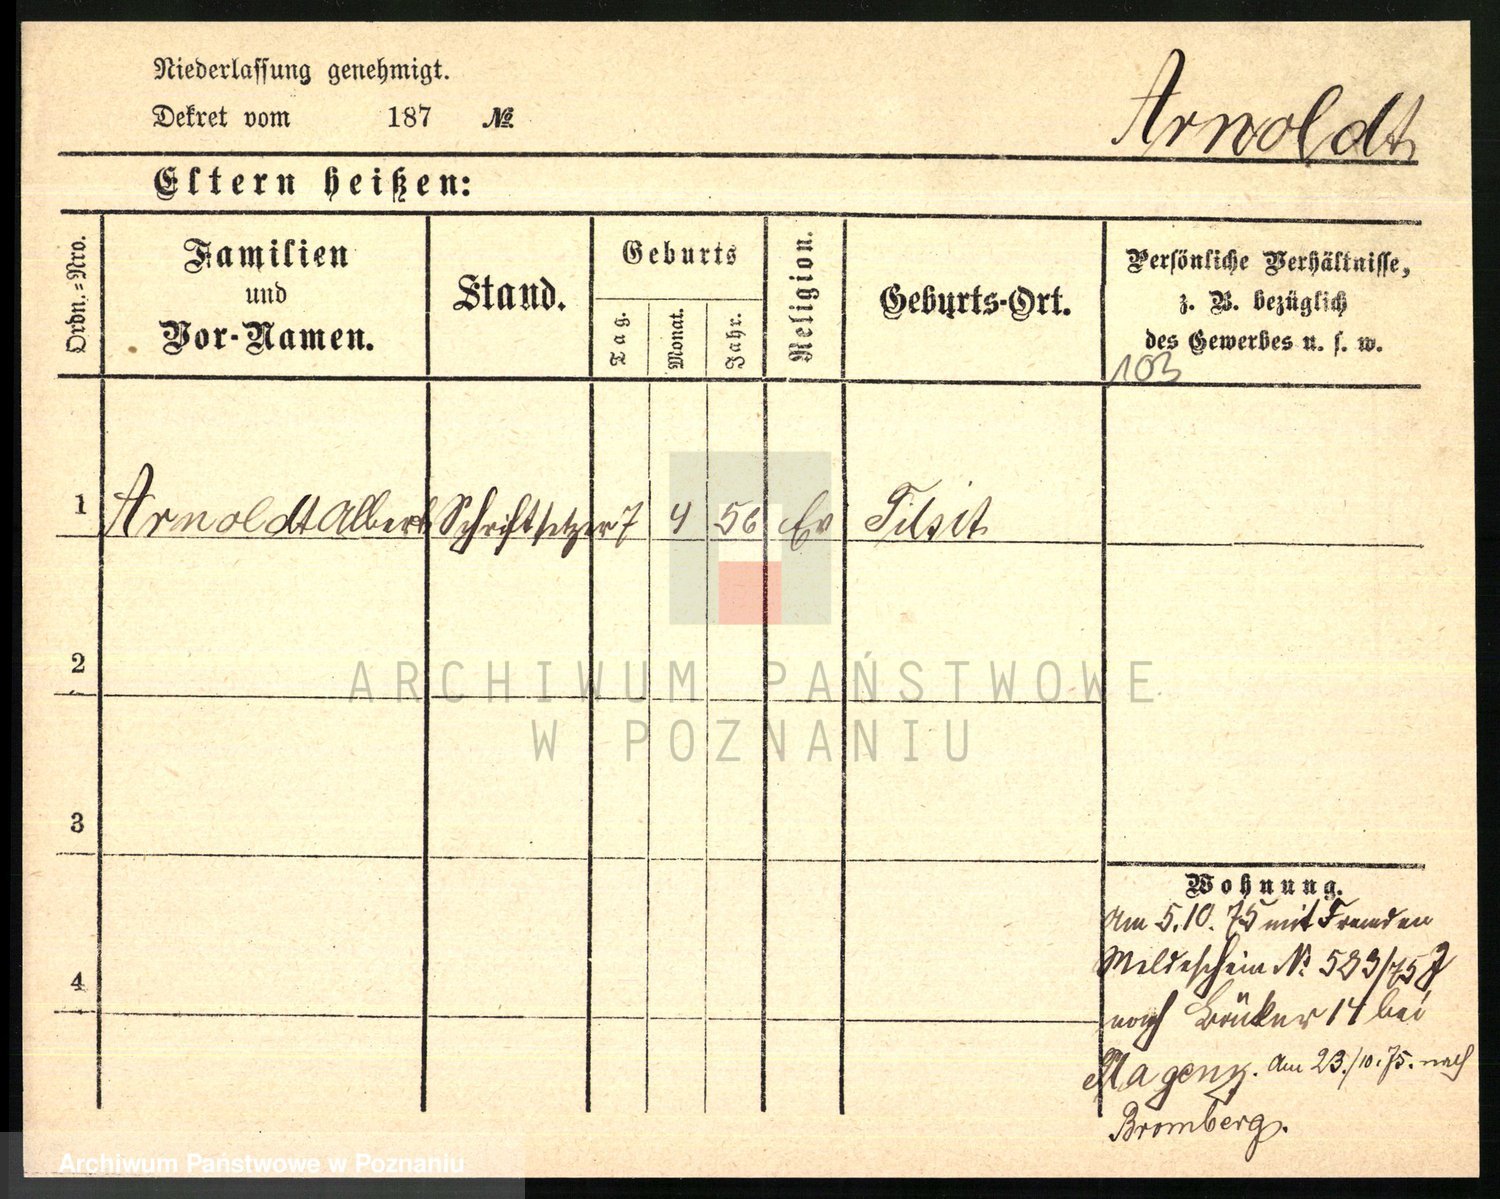 Niederlassung genehmigt.
Dekret vom 187 №
Arnoldt
Eltern heißen:
Ordn.=Nro.
Familien
und
Vor-Namen.
Stand.
Geburts
Tag.
Monat.
Jahr.
Religion.
Geburts-Ort.
Persönliche Verhältnisse,
z. B. bezüglich
des Gewerbes u. s. w.
103
1 Arnoldt Albert Schriftsetzer 7 4 56 Ev Tilsit
2
ARCHIWUM PAŃSTWOWE
W POZNANIU
3
Wohnung.
Am 5.10.75 mit Fremden
Meldeschein № 583/75
4
nach 14 bei
Am 23./10.75. nach
Bromberg.
Archiwum Państwowe w Poznaniu